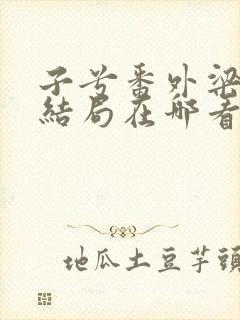 子兮番外梁
結局在哪看
地瓜土豆芋頭